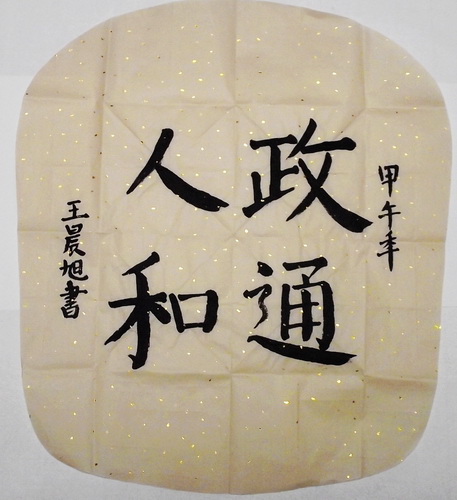 甲午年
政通
人和
王晨旭書